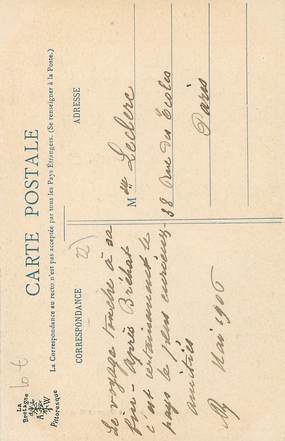 CARTE POSTALE
La Correspondance au recto n'est pas acceptée par tous les Pays Étrangers. (Se renseigner à la Poste.)
CORRESPONDANCE
ADRESSE
La
Bretagne
A W
Pittoresque
Le voyage touche à sa
fin - Après Bréhat
c'est certainement le
pays le plus curieux.
amitiés
Mai 1906
M Leclerc
38 Rue des Ecoles
Paris